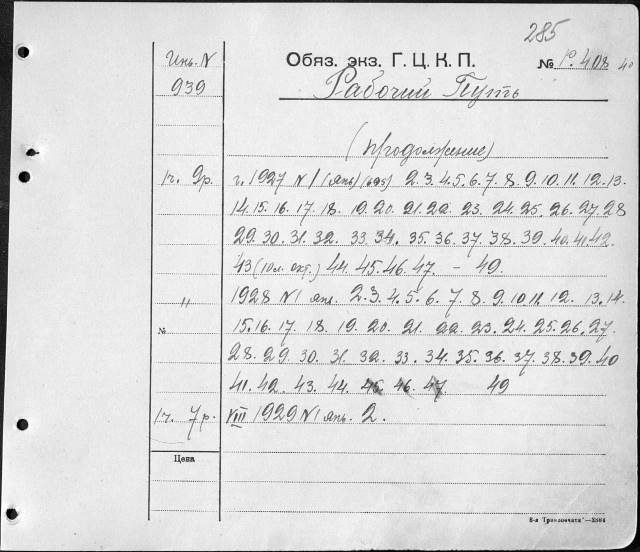 285
Инв. N
939
Обяз. экз. Г. Ц. К. П.
№ 40
Рабочий Путь
(продолжение)
1ч. 9р. г. 1927 N 1 (янв) (695) 2. 3. 4. 5. 6. 7. 8. 9. 10. 11. 12. 13.
14. 15. 16. 17. 18. 19. 20. 21. 22. 23. 24. 25. 26. 27. 28
29. 30. 31. 32. 33. 34. 35. 36. 37. 38. 39. 40. 41. 42.
43 (10л. окт.) 44. 45. 46. 47. – 49.
" 1928 N 1 янв. 2. 3. 4. 5. 6. 7. 8. 9. 10. 11. 12. 13. 14
№ 15. 16. 17. 18. 19. 20. 21. 22. 23. 24. 25. 26. 27.
28. 29. 30. 31. 32. 33. 34. 35. 36. 37. 38. 39. 40
41. 42. 43. 44. 45. 46. 47. 49
1ч. 7р. VIII 1929 N 1 янв. 2.
Цена